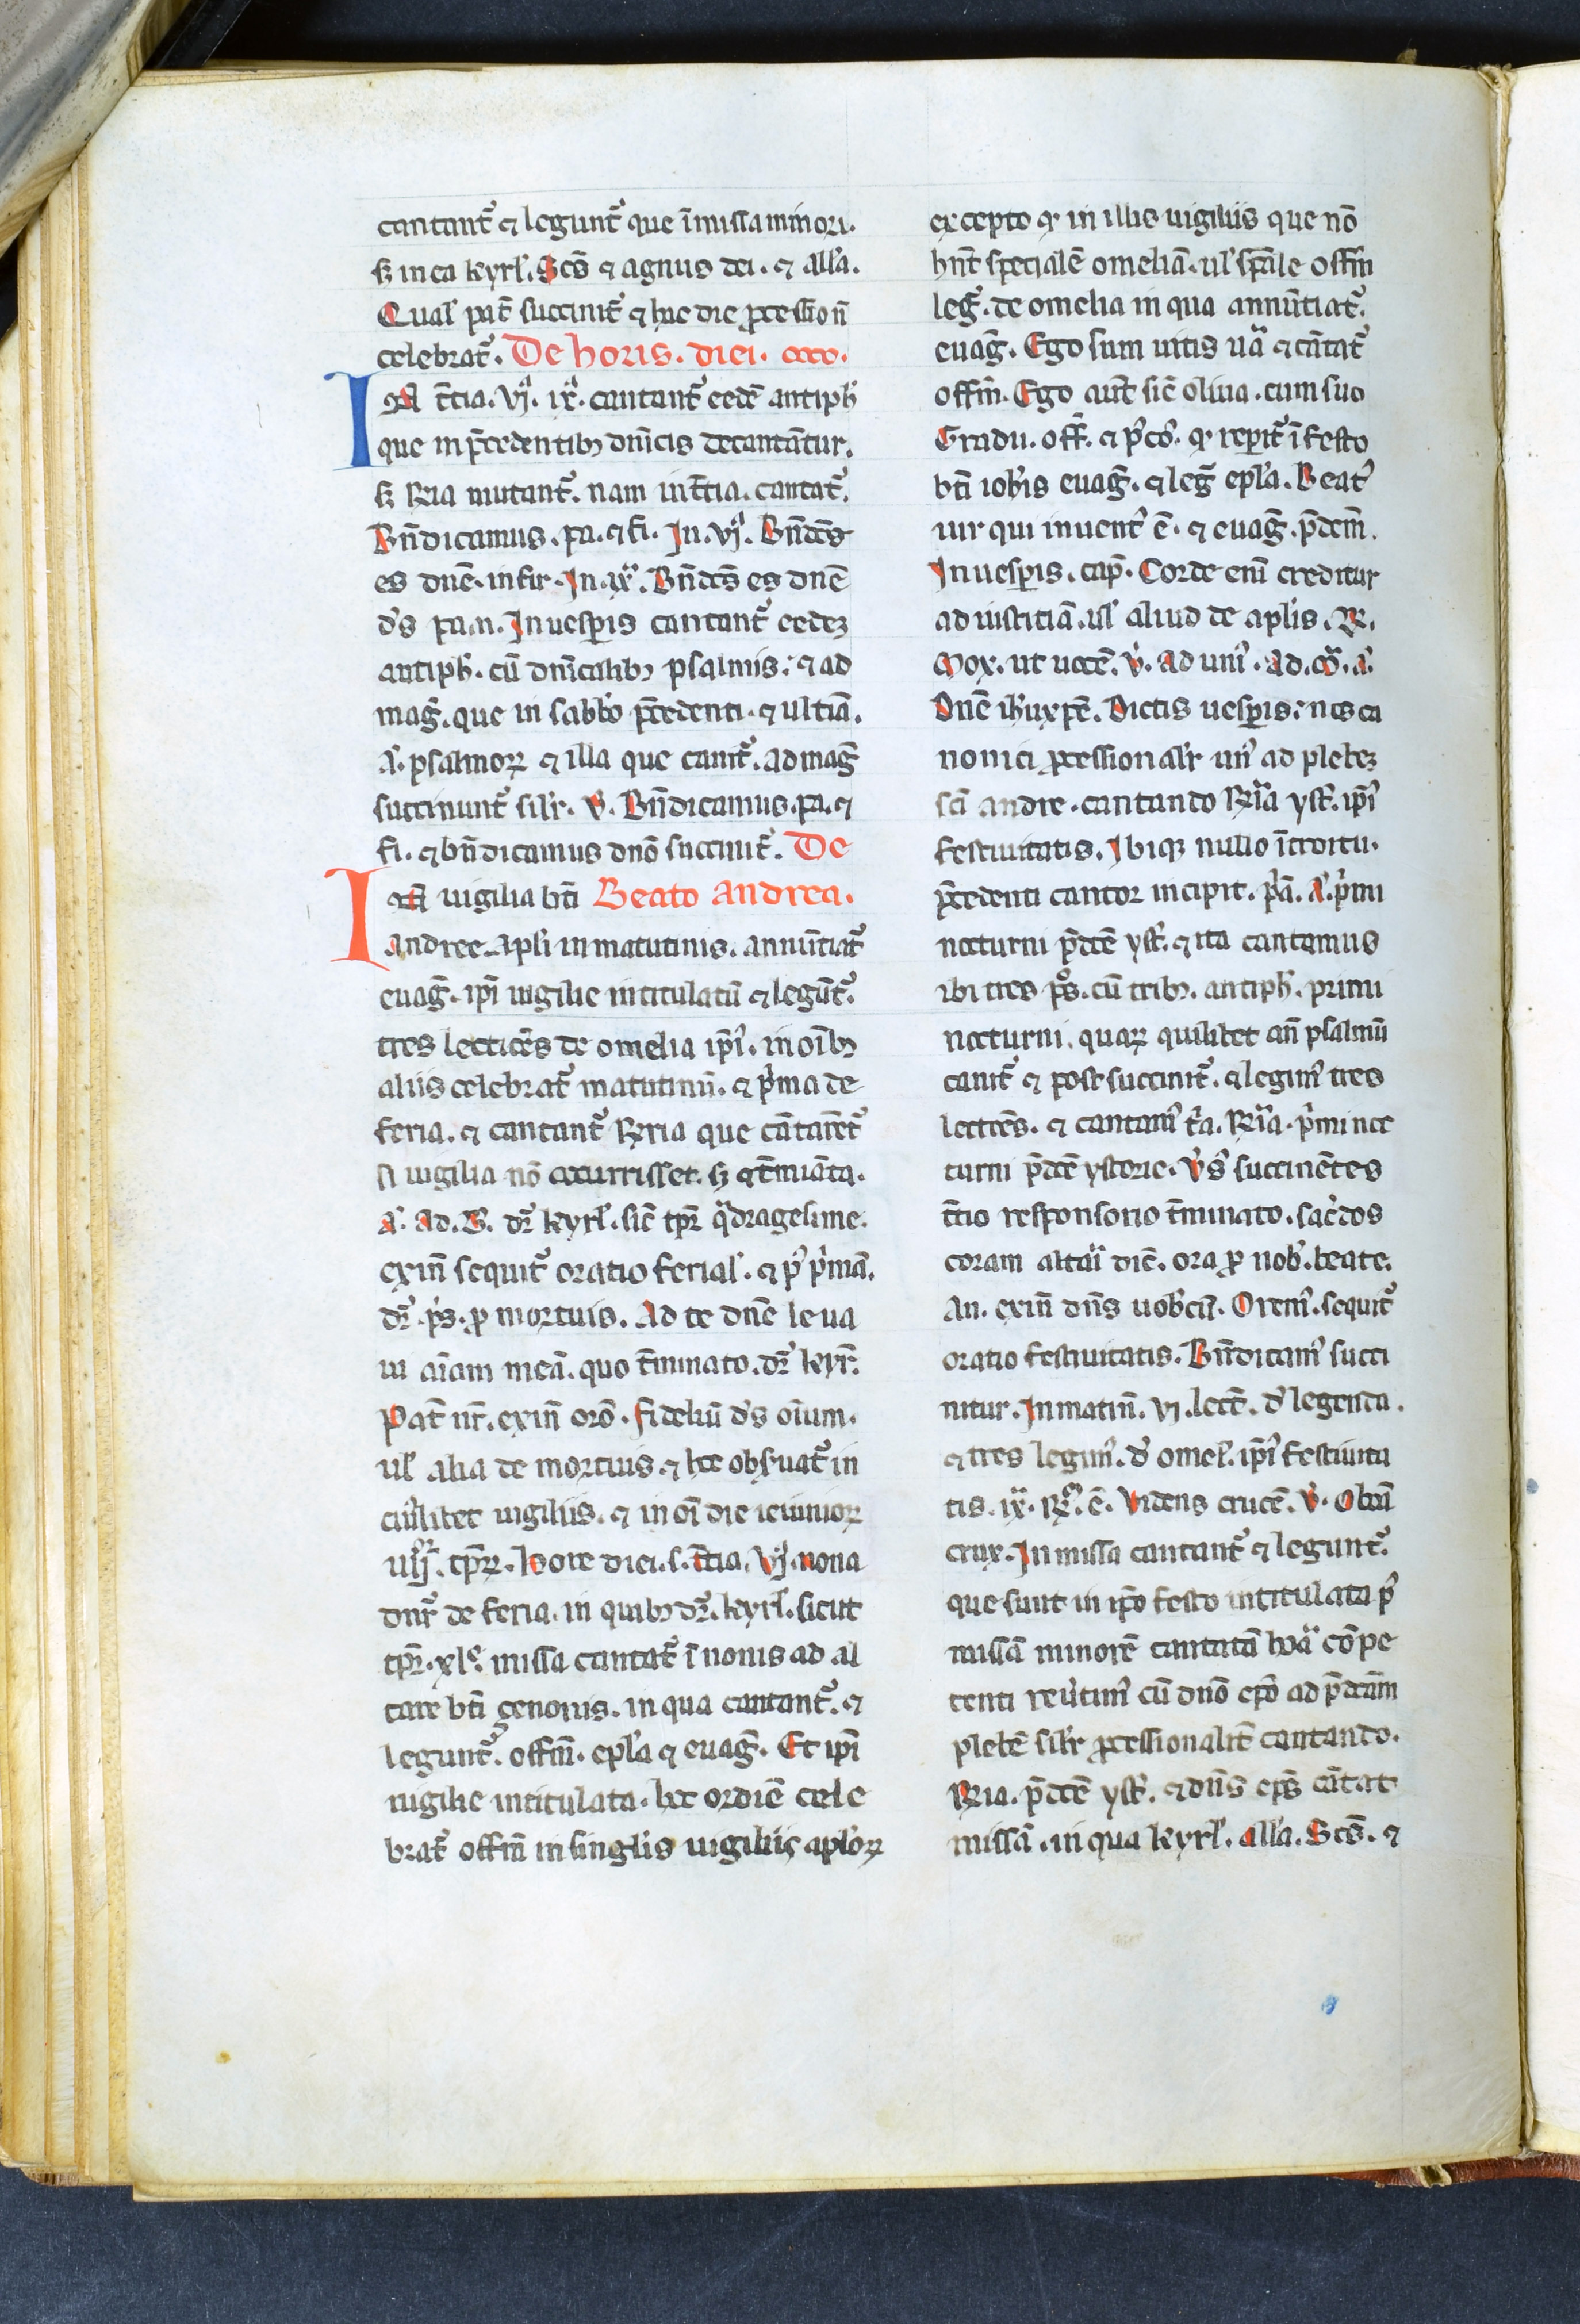 cantant᷑ ⁊ legunt᷑ que ī missa minori.
sꝫ in ea kyrl̓. Sc̄s ⁊ agnus dei. ⁊ all̓a.
Qual̓ pat᷑ succinit᷑ ⁊ hac die ꝓcession̄
celebrat᷑. De horis. diei.
IN t̄cia. vj.ͣ ix.ͣ cantant᷑ eedē antiph̓
que in p̄cedentibꝫ dn̄icis decantātur.
sꝫ ℟ria mutant᷑. nam in t̄cia. cantat᷑.
Bn̄dicamus. pa. ⁊ fi. In. vj.ͣ Bn̄dc̄s
es dn̄e. in fir. In. ix.ͣ Bn̄dc̄s es dn̄e
d̓s pa.n. In uesꝑis cantant᷑ eedeꝫ
antiph̓. cū dn̄icalibꝫ psalmis: ⁊ ad
mag̓. que in sabb̓o p̄cedenti. ⁊ ultīa.
a̓. psalmoꝝ ⁊ illa que canit᷑. ad mag̓
succinunt᷑ sil̓r. ℣. Bn̄dicamus. pa. ⁊
fi. ⁊ bn̄dicamus dn̄o succinit᷑. De
IN uigilia bt̄i Beato Andrea.
Andree apl̓i in matutinis. annūtiat᷑
euag̓. ip̄i᷒ uigilie intitulatū ⁊ legūt᷑.
tres lectiōes de omelia ip̄i᷒. in oībꝫ
aliis celebrat᷑ matutinū. ⁊ p̓ma de
feria. ⁊ cantant᷑ ℟ria que cātarēt᷑
si uigilia nō occurrisset. sꝫ
a̓. Ad. B. dr̄ kyrl̓. sic̄ tꝑe q̈dragesime.
exin̄ sequit᷑ oratio ferial̓. ⁊ p᷒ p̓mā.
dr̄. ps̓. ꝓ mortuis. Ad te dn̄e leua
ui aīam meā. quo t̄minato. dr̄ kyrl̓.
Pat᷑ nr̄. exin̄ orō. Fideliū d̓s oīum.
ul̓ alia de mortuis. ⁊ hec obẜuat᷑ in
cui᷒libet uigiliis. ⁊ in oī die ieiunioꝝ
tꝑoꝝ. Hore diei. s. t̄cia. vj. nona
dn̄r de feria. in quibꝫ dr̄. kyrl̓. sicut
tꝑe. xl.ͤ missa cantat᷑ ī nonis ad al
tare bt̄i ꝫenonis. in qua cantant᷑. ⁊
legunt᷑. offm̄. epl̓a ⁊ euag̓. Et ip̄i᷒
uigilie intitulata. hec ordiē cele
brat᷑ offm̄ in singl̓is uigiliis apl̓oꝝ
excepto ꝙ in illis uigiliis que nō
hn̄t specialē omeliā. ul̓ sp̄ale offm̄
leg᷑. de omelia in qua annūtiat᷑.
euag̓. Ego sum uitis uͣa ⁊ cātat᷑
offm̄. Ego aut̄ sic̄ oliua. cum suo
Gradu. off̄. ⁊ p᷒co̓. ꝙ reꝑit᷑ ī festo
bt̄i ioh̓is euag̓. ⁊ leg᷑ epl̓a. Beat᷒
uir qui inuent᷒ ē. ⁊ euag̓. p̄dc̄m.
In uesꝑis. cap̓. Corde enī creditur
ad iustitiā. ul̓ aliud de apl̓is. ℟.
Mox. ut uocē. ℣. Ad unī᷒. Ad. m̓. a̓.
Dn̄e ih̓u xp̄e. Dictis uesꝑis: nos ca
nonici ꝓcessional̓r im᷒ ad plebeꝫ
sc̄i andre. cantando ℟ria yst̓. ip̄i᷒
festiuitatis. Ibiqꝫ nullo ītroitu.
p̄cedenti cantor incipit. p̓a. a̓. p̓mi
nocturni p̄dc̄e yst̓. ⁊ ita cantamus
ibi tres ps̓. cū tribꝫ. antiph̓. primi
nocturni. quaꝝ quilibet an̄ psalmū
canit᷑ ⁊ post succinit᷑. ⁊ legim᷒ tres
lectōes. ⁊ cantam᷒ tͥa. ℟ria. p̓mi noc
turni p̄dc̄e ystorie. v᷒s᷒ succinētes
t̄cio responsorio t̄minato. sac̓dos
coram altaͥi dic̄. ora ꝓ nob̓. beate.
An. exin̄ dn̄s uob̓cū. Orem᷒. sequit᷑
oratio festiuitatis. Bn̄dicam᷒ succi
nitur. In matin̄. vj. lect̄. d̓ legenda.
⁊ tres legim᷒. d̓ omel̓. ip̄i᷒ festiuita
tis. ix. ℟. ē. Videns crucē. ℣. O bōa
crux. In missa cantant᷑ ⁊ legunt᷑.
que sunt in ip̄o festo intitulata p᷒
missā minorē cantatā hoͣa cōpe
tenti reu̓tim᷒ cū dn̄o ep̄o ad p̄dc̄am
plebē sil̓r ꝓcessionalit̄ cantando.
℟ria. p̄dc̄e yst̓. ⁊ dn̄s ep̄s cātat
missā. in qua kyrl̓. all̓a. Sc̄s. ⁊